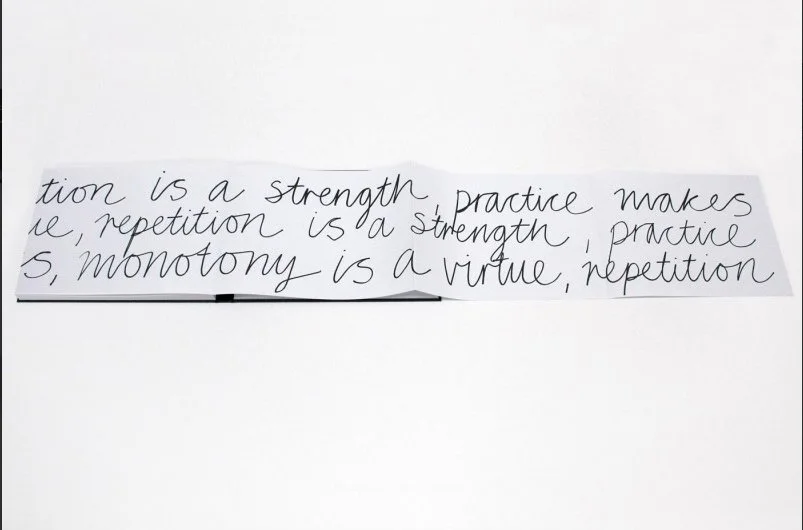 tion is a strength, practice makes
ue, repetition is a strength, practice
s, monotony is a virtue, repetition